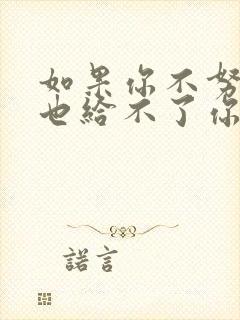 如果你不努
也给不了你
諾言